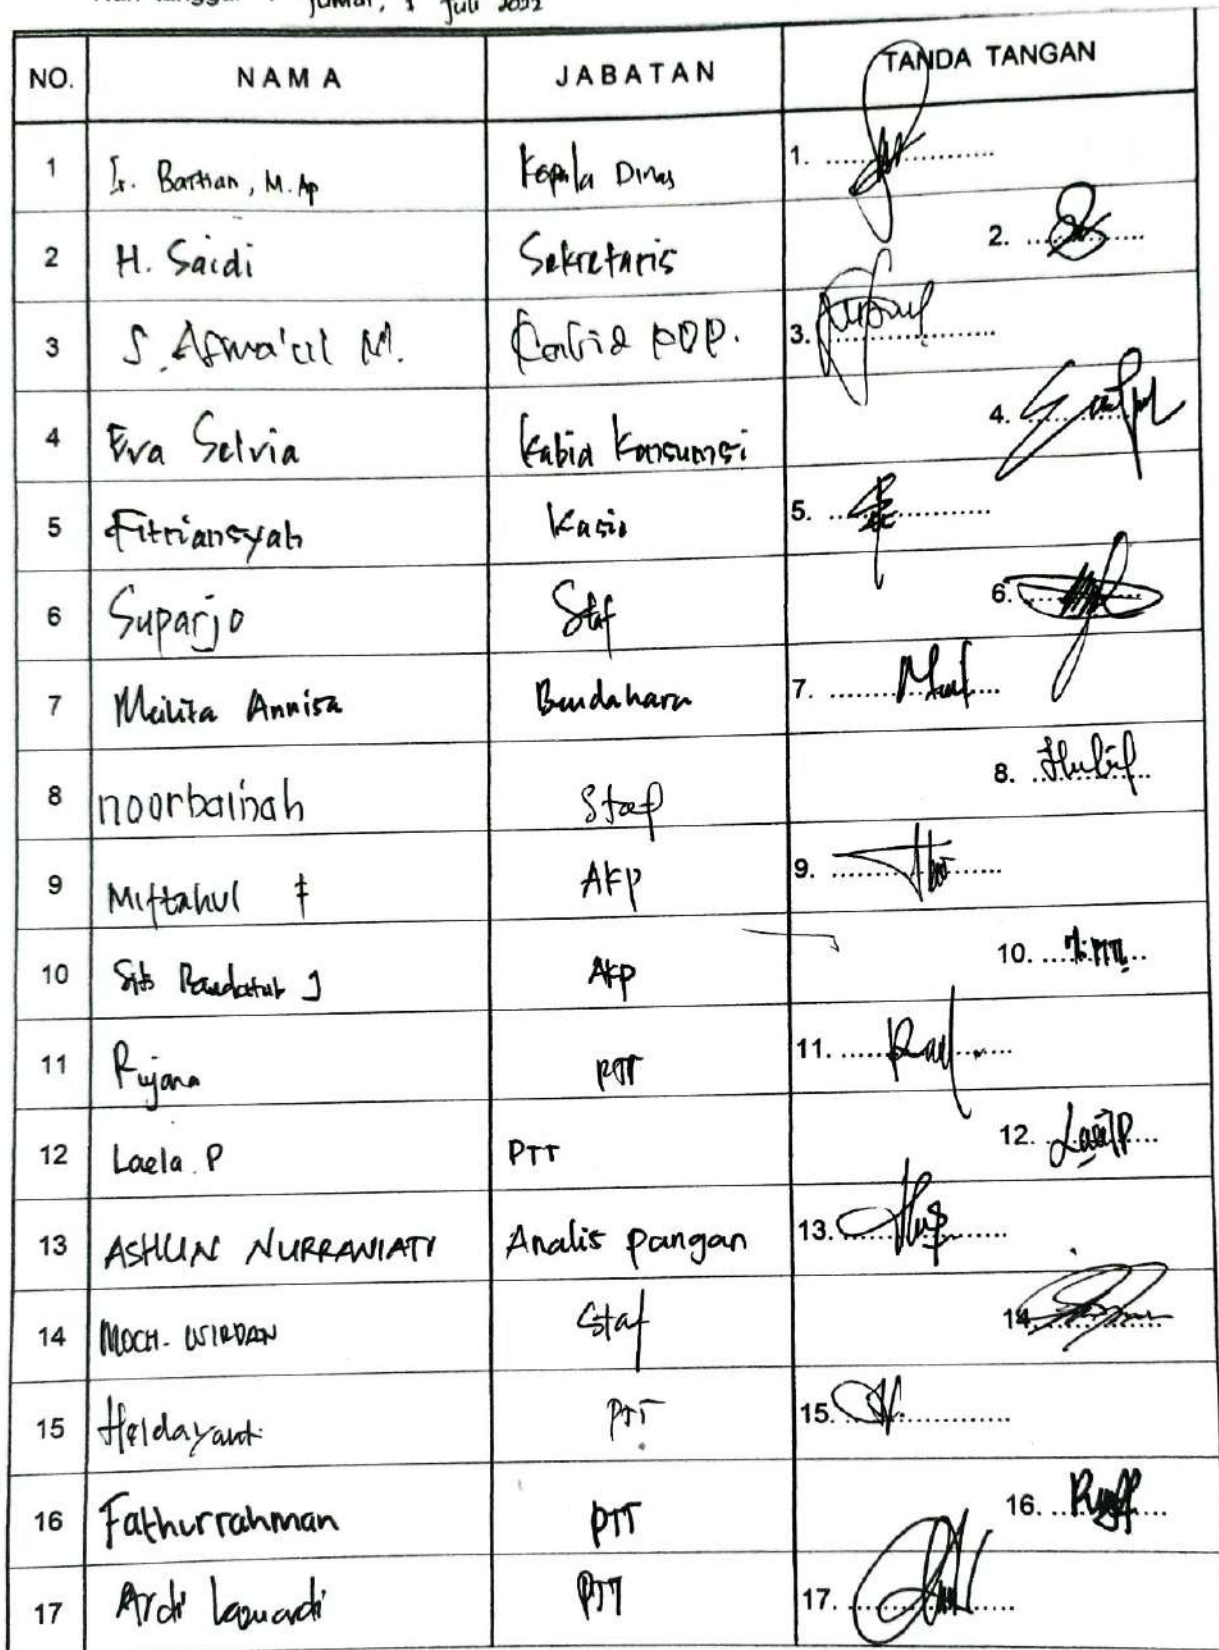 Juli 2022
NO. NAMA JABATAN TANDA TANGAN
1 Ir. Bartian, M.Ap Kepala Dinas 1.
2 H. Saidi Sekretaris 2.
3 S. M. 3.
4 Eva Selvia Kabid Konsumsi 4.
5 Fitriansyah Kasie 5.
6 Suparjo Staf 6.
7 Meilita Annisa Bendahara 7.
8 noorbainah Staf 8.
9 Miftahul AKP 9.
10 AKP 10.
11 Rujana PTT 11.
12 Laela. P PTT 12.
13 ASHLIN NURRANIATI Analis pangan 13.
14 MOCH. WIRDAN Staf 14.
15 Heldayanti PTT 15.
16 Fathurrahman PTT 16.
17 Ardi Lazuardi PTT 17.